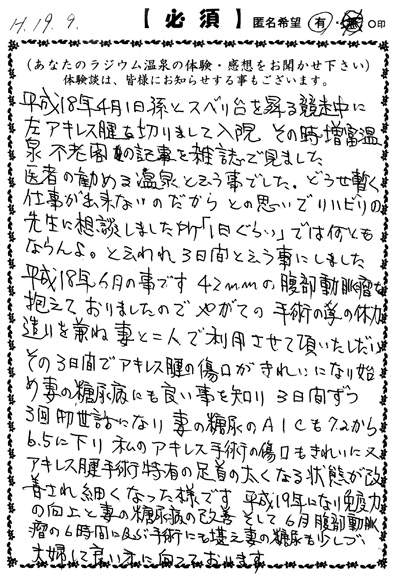 H.19.9.
【必須】 匿名希望 有・無 ○印
(あなたのラジウム温泉の体験・感想をお聞かせ下さい)
体験談は、皆様にお知らせする事もございます。
平成18年4月1日孫とスベリ台を昇る競走中に
左アキレス腱を切りまして入院 その時増富温
泉 不老閣の記事を雑誌で見ました
医者の勧める温泉と云う事でした。どうせ暫く
仕事が出来ないのだから との思いでリハビリの
先生に相談しました所「1日ぐらい」では何とも
ならんよ。と云われ 3日間と云う事にしました
平成18年6月の事です 42mmの腹部動脈瘤を
抱えて おりましたので やがての 手術の為の体力
造りを兼ね 妻と二人で利用させて頂いたしだい
その3日間でアキレス腱の傷口が きれいになり始
め妻の糖尿病にも良い事を知り 3日間ずつ
3回 御世話になり 妻の糖尿のA1Cも7.2から
6.5に下り 私のアキレス手術の傷口もきれいに又
アキレス腱手術特有の足首の太くなる状態が改
善され細くなった様です 平成19年になり免疫力
の向上と妻の糖尿病の改善 そして 6月腹部動脈
瘤の6時間に及ぶ手術にも堪え妻の糖尿も少しづ
夫婦して良い方に向って おります